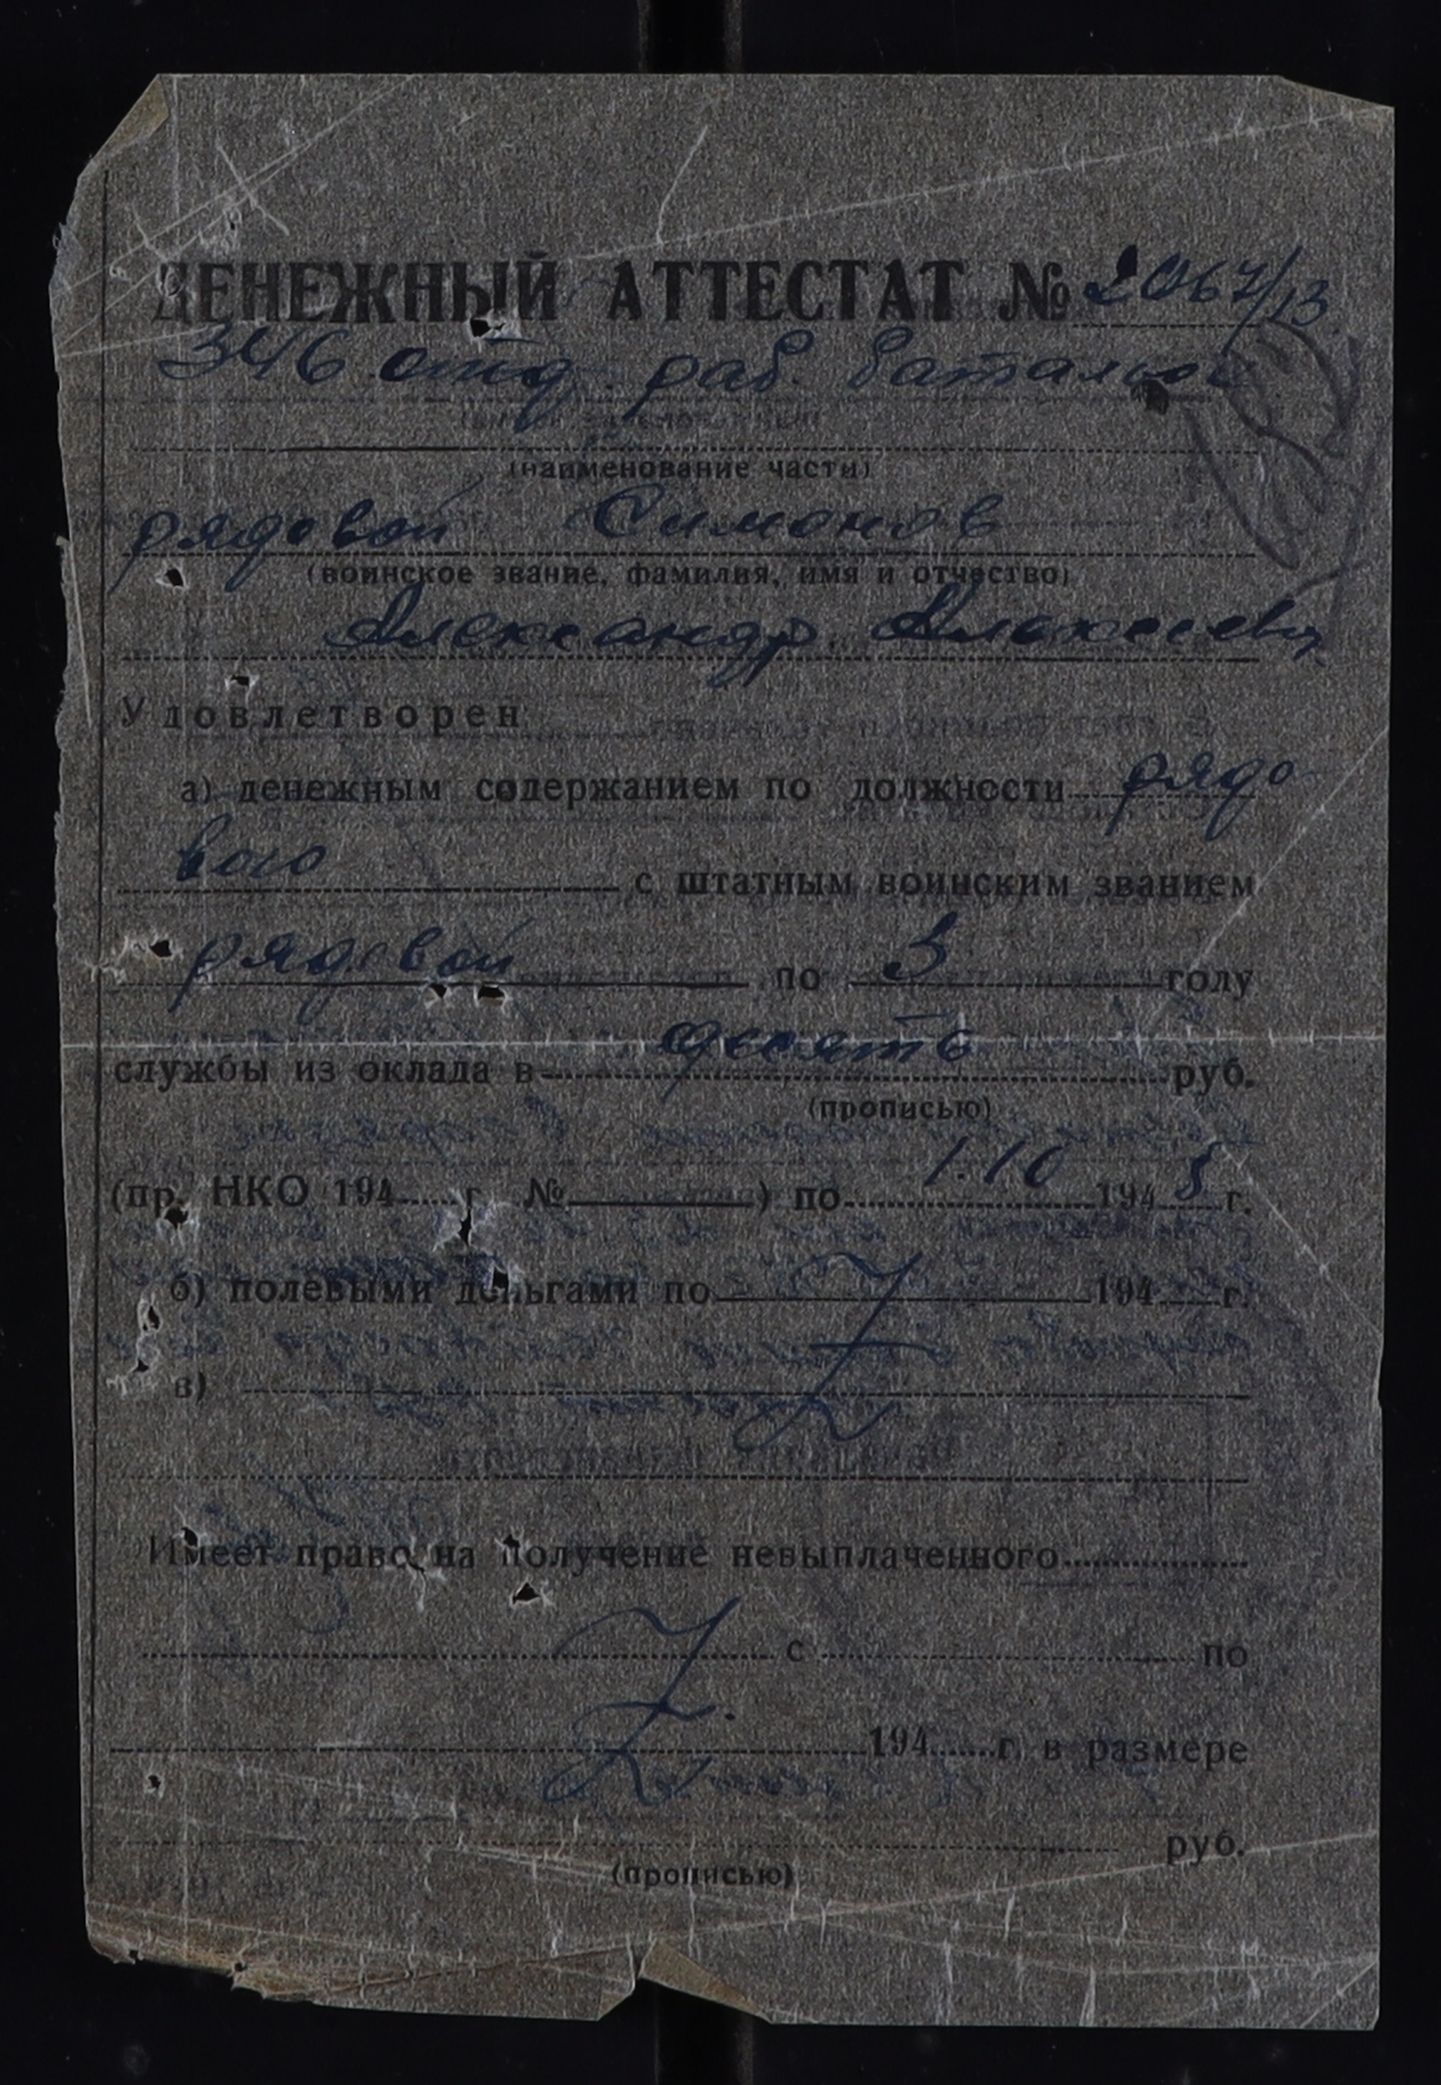 ДЕНЕЖНЫЙ АТТЕСТАТ №
346 отд. раб. батальон
(наименование части)
рядовой Симонов
(воинское звание, фамилия, имя и отчество)
Александр Алексеевич
Удовлетворен
а) денежным содержанием по должности рядо
вого с штатным воинским званием
рядовой по 3 году
службы из оклада в десять руб.
(прописью)
(пр. НКО 194 г. № ) по 1.10 1945 г.
б) полевыми деньгами по 194 г.
в)
Имеет право на получение невыплаченного
с по
194 г. в размере
руб.
(прописью)